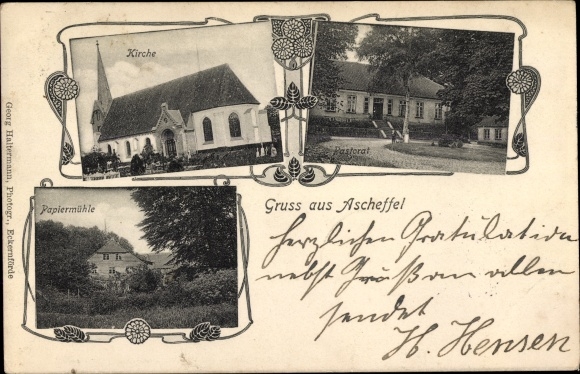 Kirche
Pastorat
Papiermühle
Gruss aus Ascheffel
herzlichen Gratulation
nebst Grüß an allen
sendet
H. Hensen
Georg Haltermann, Photogr., Eckernförde